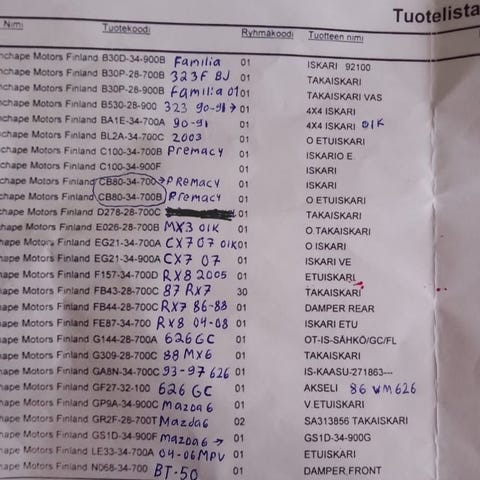 Tuotelista
Nimi Tuotekoodi Ryhmäkoodi Tuotteen nimi
nchape Motors Finland B30D-34-900B Familia 01 ISKARI 92100
nchape Motors Finland B30P-28-700B 323F BJ 01 TAKAISKARI
nchape Motors Finland B30P-28-900B Familia 01 01 TAKAISKARI VAS
nchape Motors Finland B530-28-900 323 90-91→ 01 4X4 ISKARI
nchape Motors Finland BA1E-34-700A 90-91 01 4X4 ISKARI OIK
nchape Motors Finland BL2A-34-700C 2003 01 O ETUISKARI
nchape Motors Finland C100-34-700B Premacy 01 ISKARIO E
nchape Motors Finland C100-34-900F 01 ISKARI
nchape Motors Finland CB80-34-700 → PRemacy 01 ISKARI
nchape Motors Finland CB80-34-700B Premacy 01 O ETUISKARI
nchape Motors Finland D278-28-700C 01 TAKAISKARI
nchape Motors Finland E026-28-700B MX3 OIK 01 O TAKAISKARI
nchape Motors Finland EG21-34-700A CX7 07 OIK 01 O ISKARI
nchape Motors Finland EG21-34-900A CX7 07 01 ISKARI VE
nchape Motors Finland F157-34-700D RX8 2005 01 ETUISKARI
hape Motors Finland FB43-28-700C 87 RX7 30 TAKAISKARI
hape Motors Finland FB44-28-700C RX7 86-88 01 DAMPER REAR
hape Motors Finland FE87-34-700 RX8 04-08 01 ISKARI ETU
hape Motors Finland G144-28-700A 626 GC 01 OT-IS-SÄHKÖ/GC/FL
hape Motors Finland G309-28-700C 88 MX6 01 TAKAISKARI
hape Motors Finland GA8N-34-700C 93-97 626 01 IS-KAASU-271863---
hape Motors Finland GF27-32-100 626 GC 01 AKSELI 86 WM 626
hape Motors Finland GP9A-34-900C Mazda6 01 V.ETUISKARI
hape Motors Finland GR2F-28-700T Mazda6 02 SA313856 TAKAISKARI
hape Motors Finland GS1D-34-900F mazda6 → 01 GS1D-34-900G
hape Motors Finland LE33-34-700A 04-06 MPV 01 ETUISKARI
hape Motors Finland N068-34-700 BT-50 01 DAMPER,FRONT